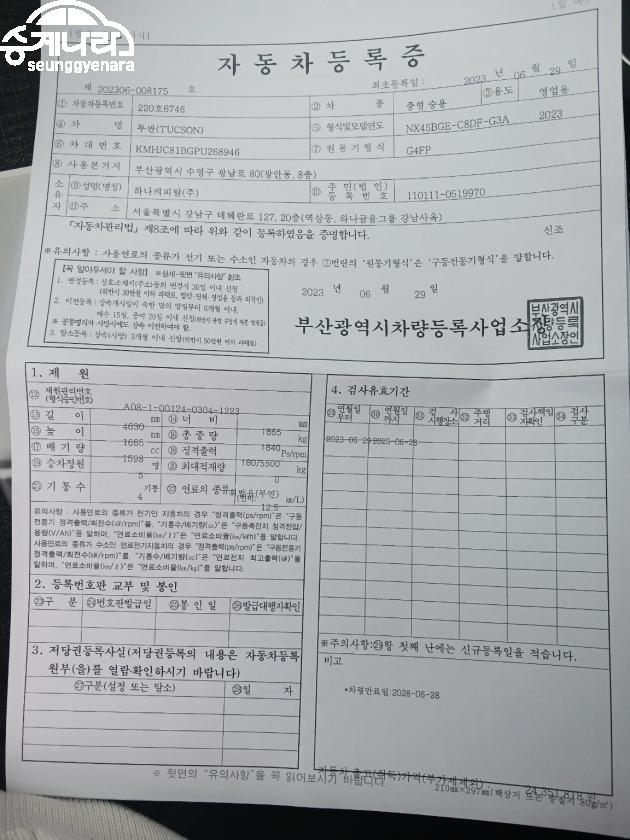 승계나라
seunggyenara
자동차등록증
제 202306-008175 호
최초등록일 : 2023 년 06 월 29 일
① 자동차등록번호 220호6746 ② 차 종 중형 승용 ③용도 영업용
④ 차 명 투싼(TUCSON) ⑤ 형식및모델연도 NX45BGE-C8DF-G3A 2023
⑥ 차대번호 KMHJC81BGPU268946 ⑦ 원동기형식 G4FP
⑧ 사용본거지 부산광역시 수영구 광남로 80(광안동, 8층)
소유자 ⑨성명(명칭) 하나캐피탈(주) ⑩ 주민(법인)등록번호 110111-0519970
⑪주 소 서울특별시 강남구 테헤란로 127, 20층(역삼동, 하나금융그룹 강남사옥)
「자동차관리법」제8조에 따라 위와 같이 등록하였음을 증명합니다. 신조
※유의사항 : 사용연료의 종류가 전기 또는 수소인 자동차의 경우 ⑦번란의 '원동기형식'은 '구동전동기형식'을 말합니다.
[꼭 알아두셔야 할 사항] ※상세-뒷면 "유의사항" 참조
1. 변경등록 : 상호소재지(주소)등의 변경시 30일 이내 신청
2. 이전등록 : 상속개시일이 속한 달의 말일부터 6개월 이내,
※ 공동명의자 사망시에도 상속 이전하여야 함.
3. 말소등록 : 상속(사망) 3개월 이내 신청(위반시 50만원 이하 과태료)
2023 년 06 월 29 일
부산광역시차량등록사업소장
부산광역시
차량등록
사업소장인
1. 제 원
⑫ 제원관리번호(형식승인번호) A08-1-00124-0304-1223
⑬ 길 이 4630 mm ⑭ 너 비 1865 mm
⑮ 높 이 1665 mm ⑯ 총중량 1840 kg
⑰ 배기량 1598 cc ⑱ 정격출력 180/5500 Ps/rpm
⑲ 승차정원 5 명 ⑳ 최대적재량 0 kg
㉑ 기통수 4 기통 ㉒ 연료의 종류 휘발유(무연) (연비: 12.5 km/L)
유의사항 : 사용연료의 종류가 전기인 자동차의 경우 "정격출력(ps/rpm)"은 "구동
전동기 정격출력/회전수(㎾/rpm)"를, "기통수/배기량(cc)"은 "구동축전지 정격전압/
용량(V/Ah)"을 말하며, "연료소비율(㎞/ℓ)"은 "연료소비율(㎞/㎾h)"를 말합니다.
사용연료의 종류가 수소인 연료전기자동차의 경우 "정격출력(ps/rpm)"은 "구동전동기
정격출력/회전수(㎾/rpm)"를, "기통수/배기량(cc)"은 "연료전지 최고출력(㎾)"를
말하며, "연료소비율(㎞/ℓ)"은 "연료소비율(㎞/kg)"를 말합니다.
2. 등록번호판 교부 및 봉인
㉓구 분 ㉔번호판발급일 ㉕봉인일 ㉖발급대행자확인
3. 저당권등록사실(저당권등록의 내용은 자동차등록
원부(을)를 열람·확인하시기 바랍니다)
㉗구분(설정 또는 말소) ㉘일 자
4. 검사유효기간
㉙ 연월일부터 ㉚ 연월일까지 ㉛ 검사시행장소 ㉜ 주행거리 ㉝ 검사책임자확인 ㉞ 검사구분
2023-06-29 2025-06-28
※주의사항:㉙항 첫째 난에는 신규등록일을 적습니다.
비고
*차령만료일:2028-06-28
※ 뒷면의 "유의사항"을 꼭 읽어보시기 바랍니다.
자동차 출고(취득)가격(부가세제외) : 24,351,818 원
210㎜×297㎜(백상지 또는 중질지 80g/㎡)